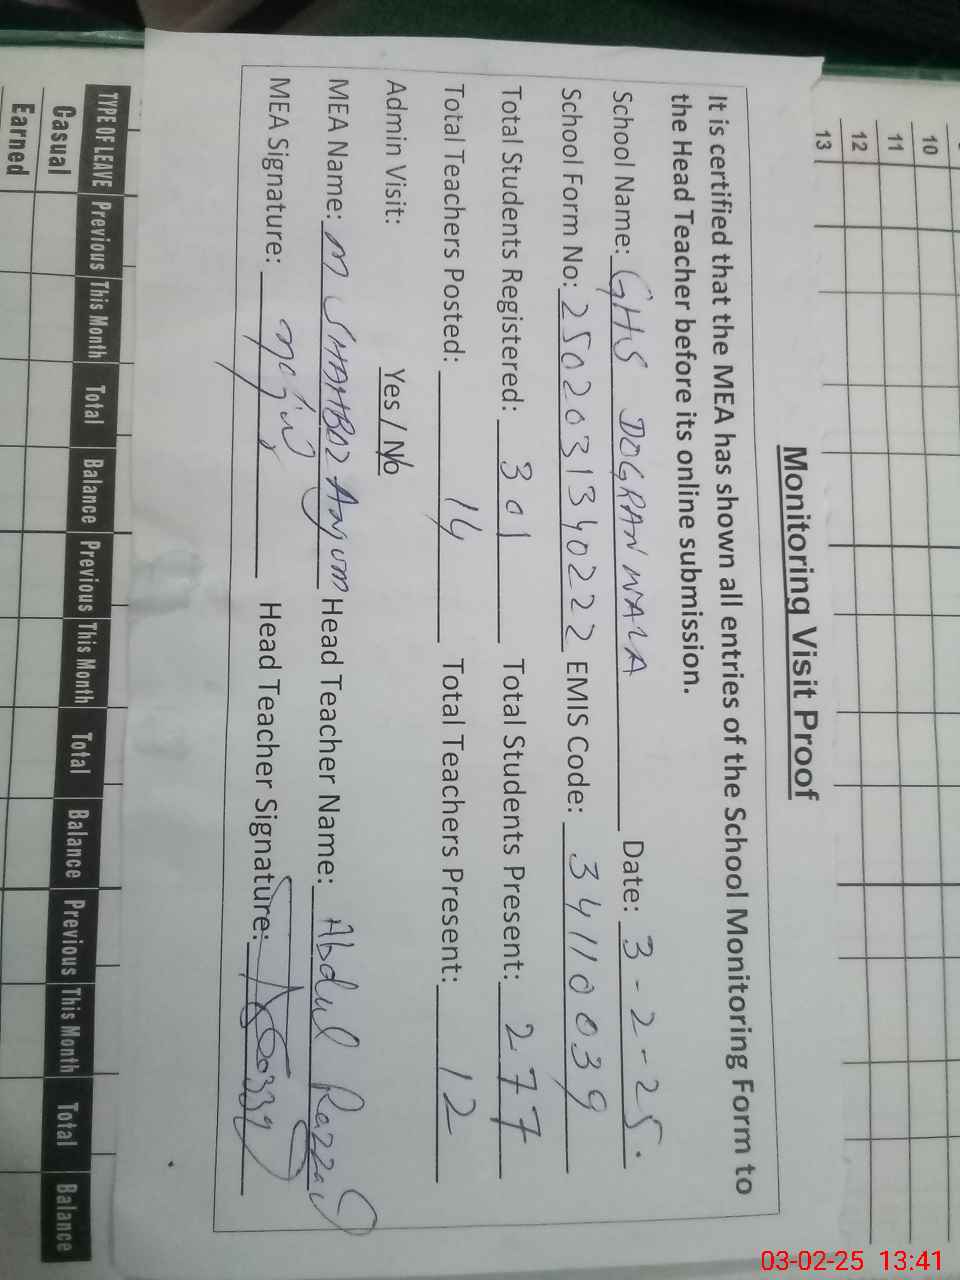 Monitoring Visit Proof
It is certified that the MEA has shown all entries of the School Monitoring Form to
the Head Teacher before its online submission.
School Name: GHS DOGRANWALA Date: 3-2-25.
School Form No: 2502031340222 EMIS Code: 34110039
Total Students Registered: 301 Total Students Present: 277
Total Teachers Posted: 14 Total Teachers Present: 12
Admin Visit: Yes / No
MEA Name: M SHAHBOZ Anjum Head Teacher Name: Abdul Razzaq
MEA Signature: Head Teacher Signature:
10
11
12
13
TYPE OF LEAVE Previous This Month Total Balance Previous This Month Total Balance Previous This Month Total Balance
Casual
Earned
03-02-25 13:41